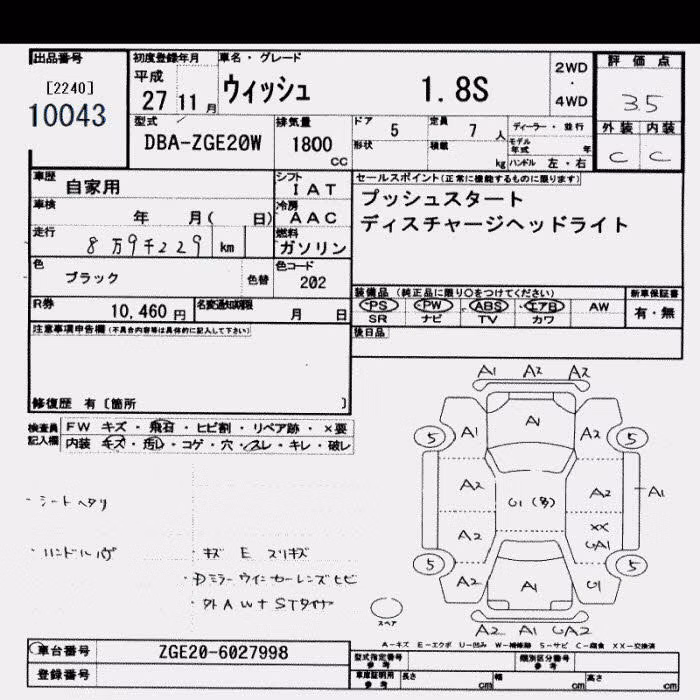 出品番号
[2240]
10043
初度登録年月
平成
27 11 月
車名・グレード
ウィッシュ 1.8S
2WD
・
4WD
評価点
3.5
外装 内装
C C
型式
DBA-ZGE20W
排気量
1800
CC
ドア 5
定員 7 人
形状
積載 kg
ディーラー・並行
モデル年式 年
ハンドル 左・右
車歴 自家用
シフト
IAT
車検 年 月( 日)
冷房
AAC
走行 8万9千229 km
燃料
ガソリン
色 ブラック 色替
色コード
202
R券 10,460 円
名変通知期限 月 日
セールスポイント(正常に機能するものに限ります)
プッシュスタート
ディスチャージヘッドライト
装備品 (純正品に限り○をつけてください)
PS PW ABS エアB AW
SR ナビ TV カワ
新車保証書
有・無
後日品
注意事項申告欄(不具合内容等は具体的に記入して下さい)
修復歴 有〔箇所 〕
検査員
記入欄
FW キズ・飛石・ヒビ割・リペア跡・×要
内装 キズ・汚レ・コゲ・穴・スレ・キレ・破レ
・シートヘタリ
・キズ E スリキズ
・Dミラーウインカーレンズヒビ
・外AW+STタイヤ
A1 A2 A2
A1 A1 A2
5 5
A2 U1(多) A2 A1
A2 XX
GA1
5 5
A2 A1 U1
スペア
A2 A1 GA2
A-キズ E-エクボ U-凹み W-補修跡 S-サビ C-腐食 XX-交換済
車台番号 ZGE20-6027998
登録番号
型式指定番号
参考
類別区分番号
参考
車庫証明用
参考
長さ cm
幅 cm
高さ cm